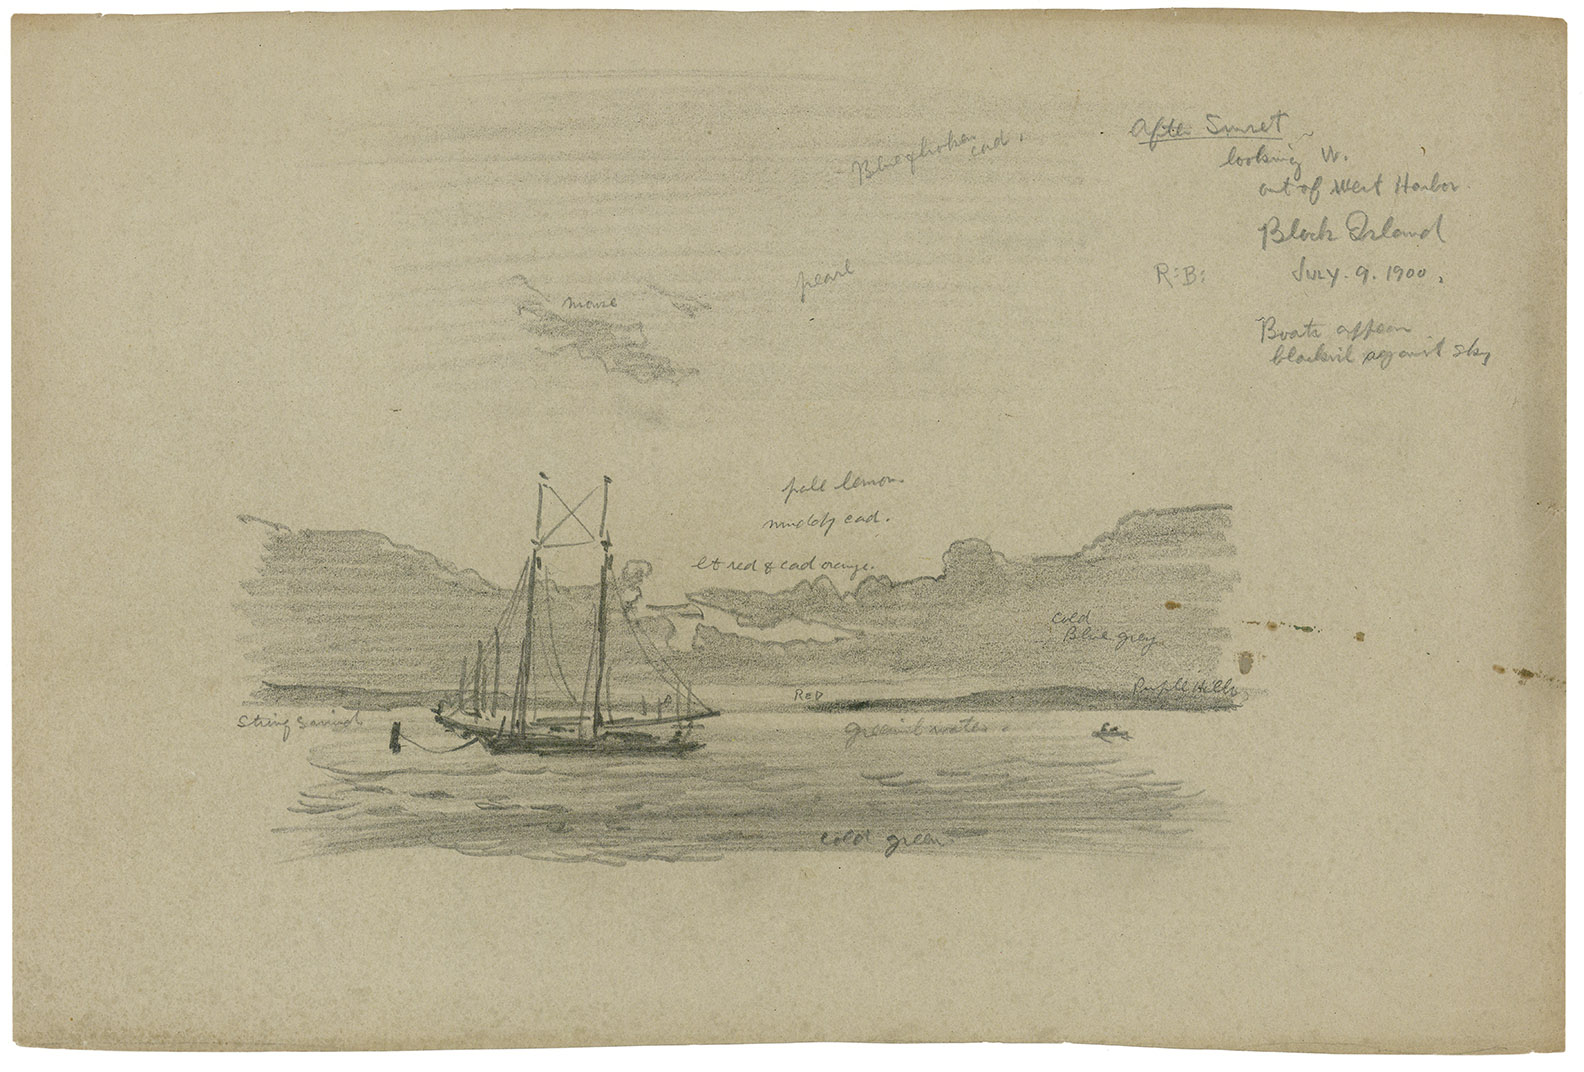 After Sunset
looking W.
out of West Harbor
Block Island
R:B: July. 9. 1900.
Boats appear
against sky
Blue & broken
cad.
pearl
mauve
pale lemon
muddy cad.
lt red & cad orange.
Cold
Blue grey
Red
Purple Hills
water
cold green.